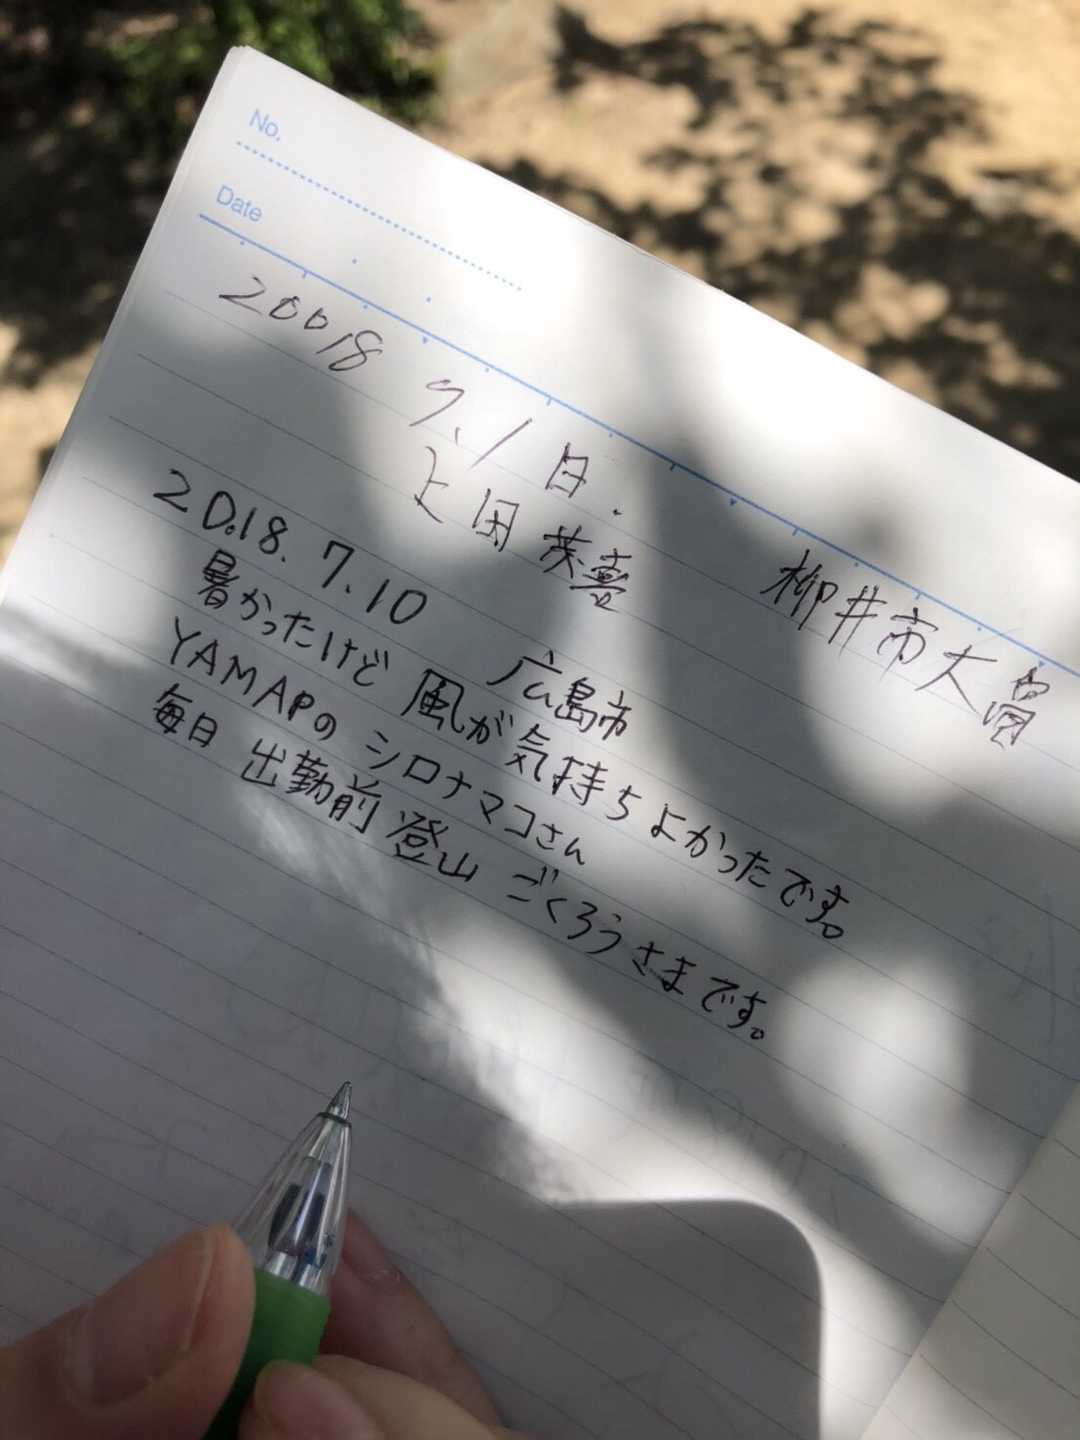 No.
Date
20018 7.1日.
上田 英喜 柳井市大畠
2018.7.10 広島市
暑かったけど 風が気持ちよかったです。
YAMAPの シロナマコさん
毎日 出勤前登山 ごくろうさまです。